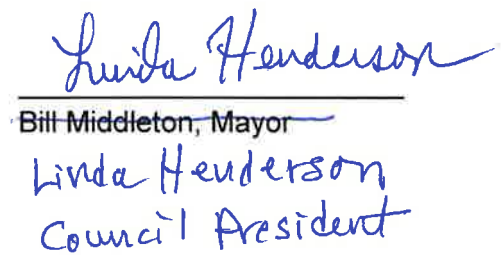 Linda Henderson
Bill Middleton, Mayor
Linda Henderson
Council President